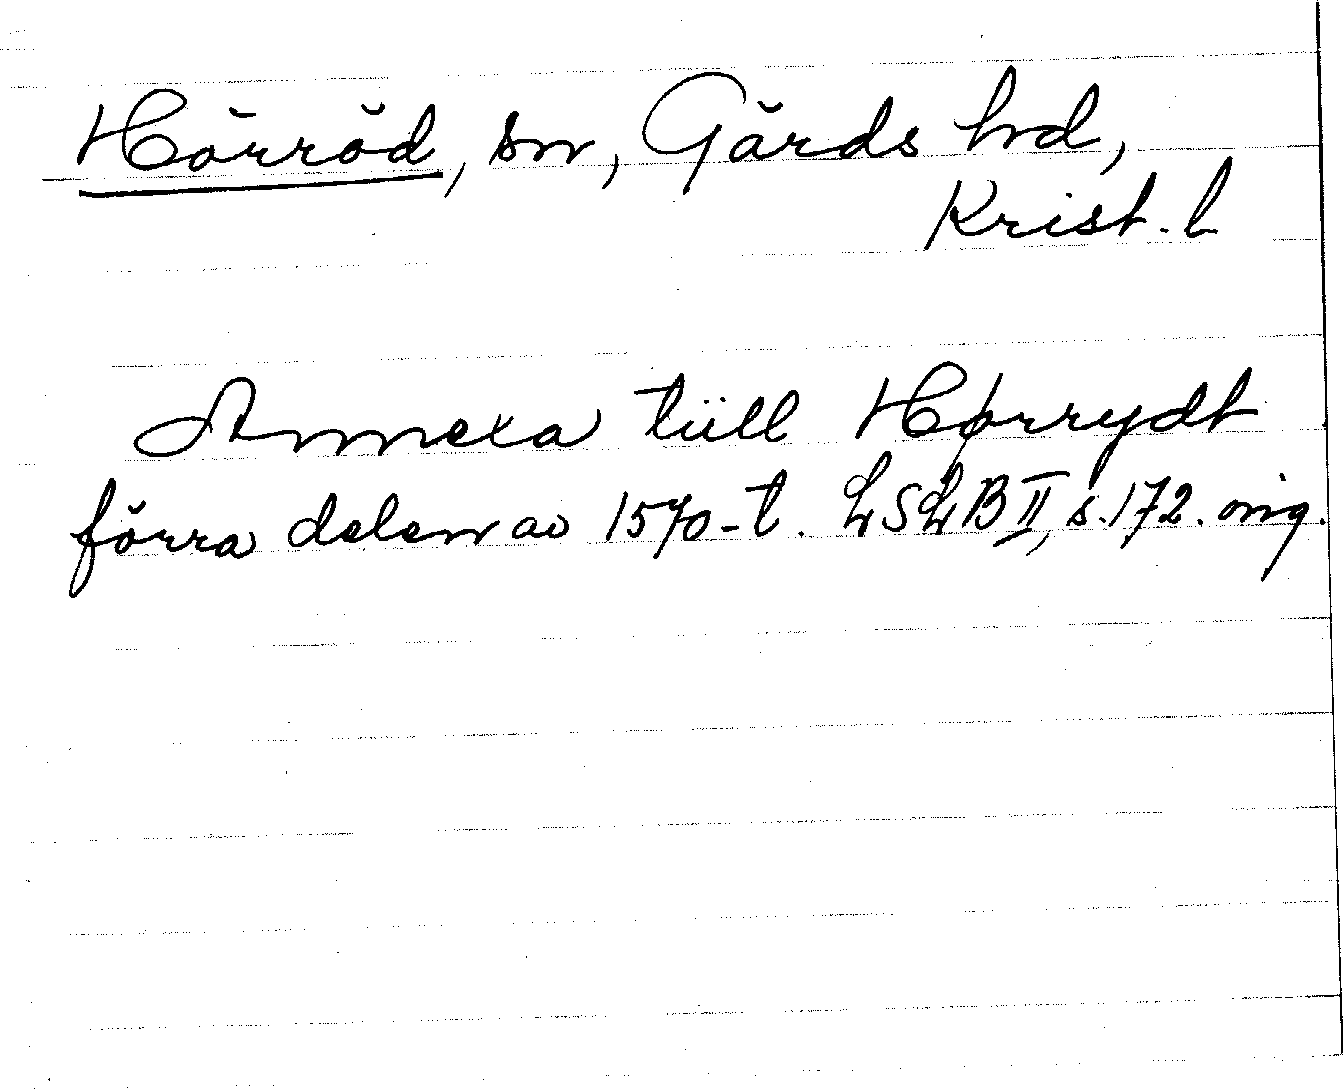 Hörröd, sn, Gärds hd,
Krist. l
Annexa tiill Hørrydt
förra delen av 1570-t. LSLB II, s. 172. orig.